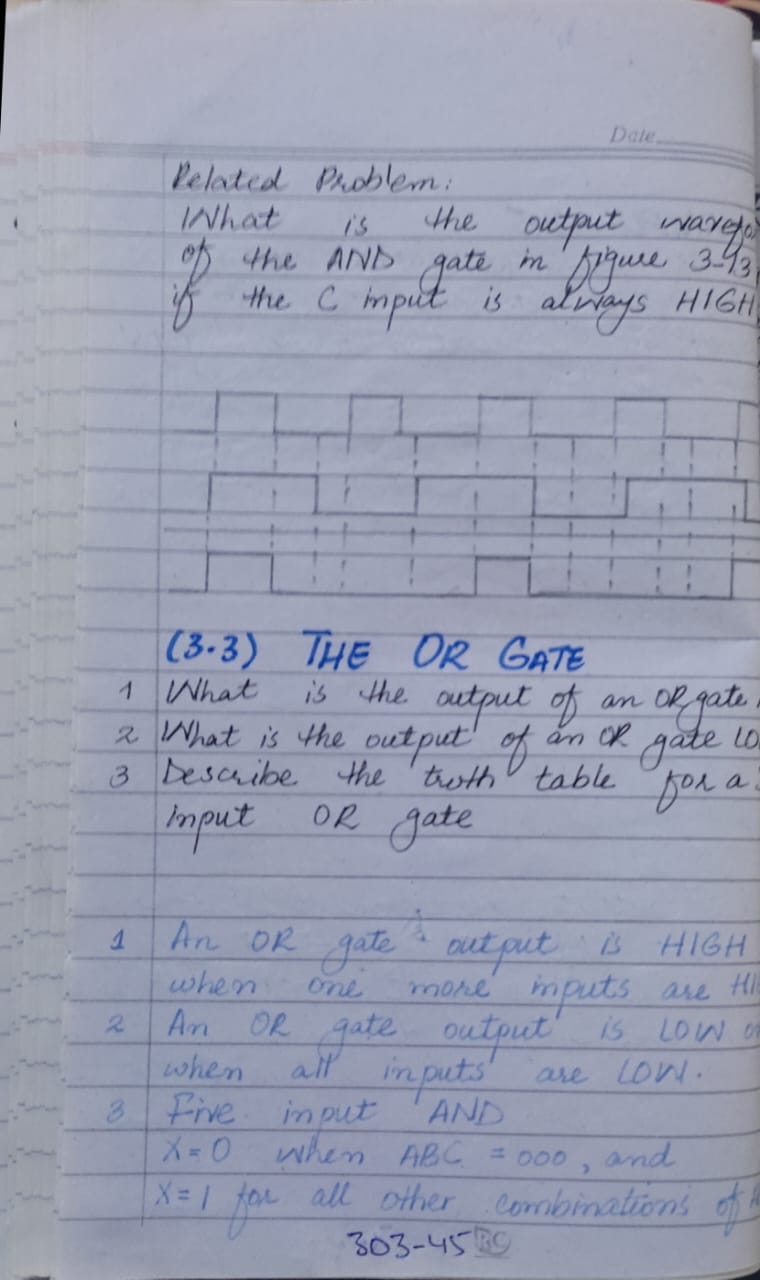 Date
Related Problem:
What is the output wavefo
of the AND gate in figure 3-13,
if the C input is always HIGH
(3.3) THE OR GATE
1 What is the output of an OR gate
2 What is the output of an OR gate LO
3 Describe the truth table for a
input OR gate
1 An OR gate output is HIGH
when one more inputs are HI
2 An OR gate output is LOW o
when all inputs are LOW.
3 Five input AND
X=0 when ABC = 000, and
X=1 for all other combinations of
303-45